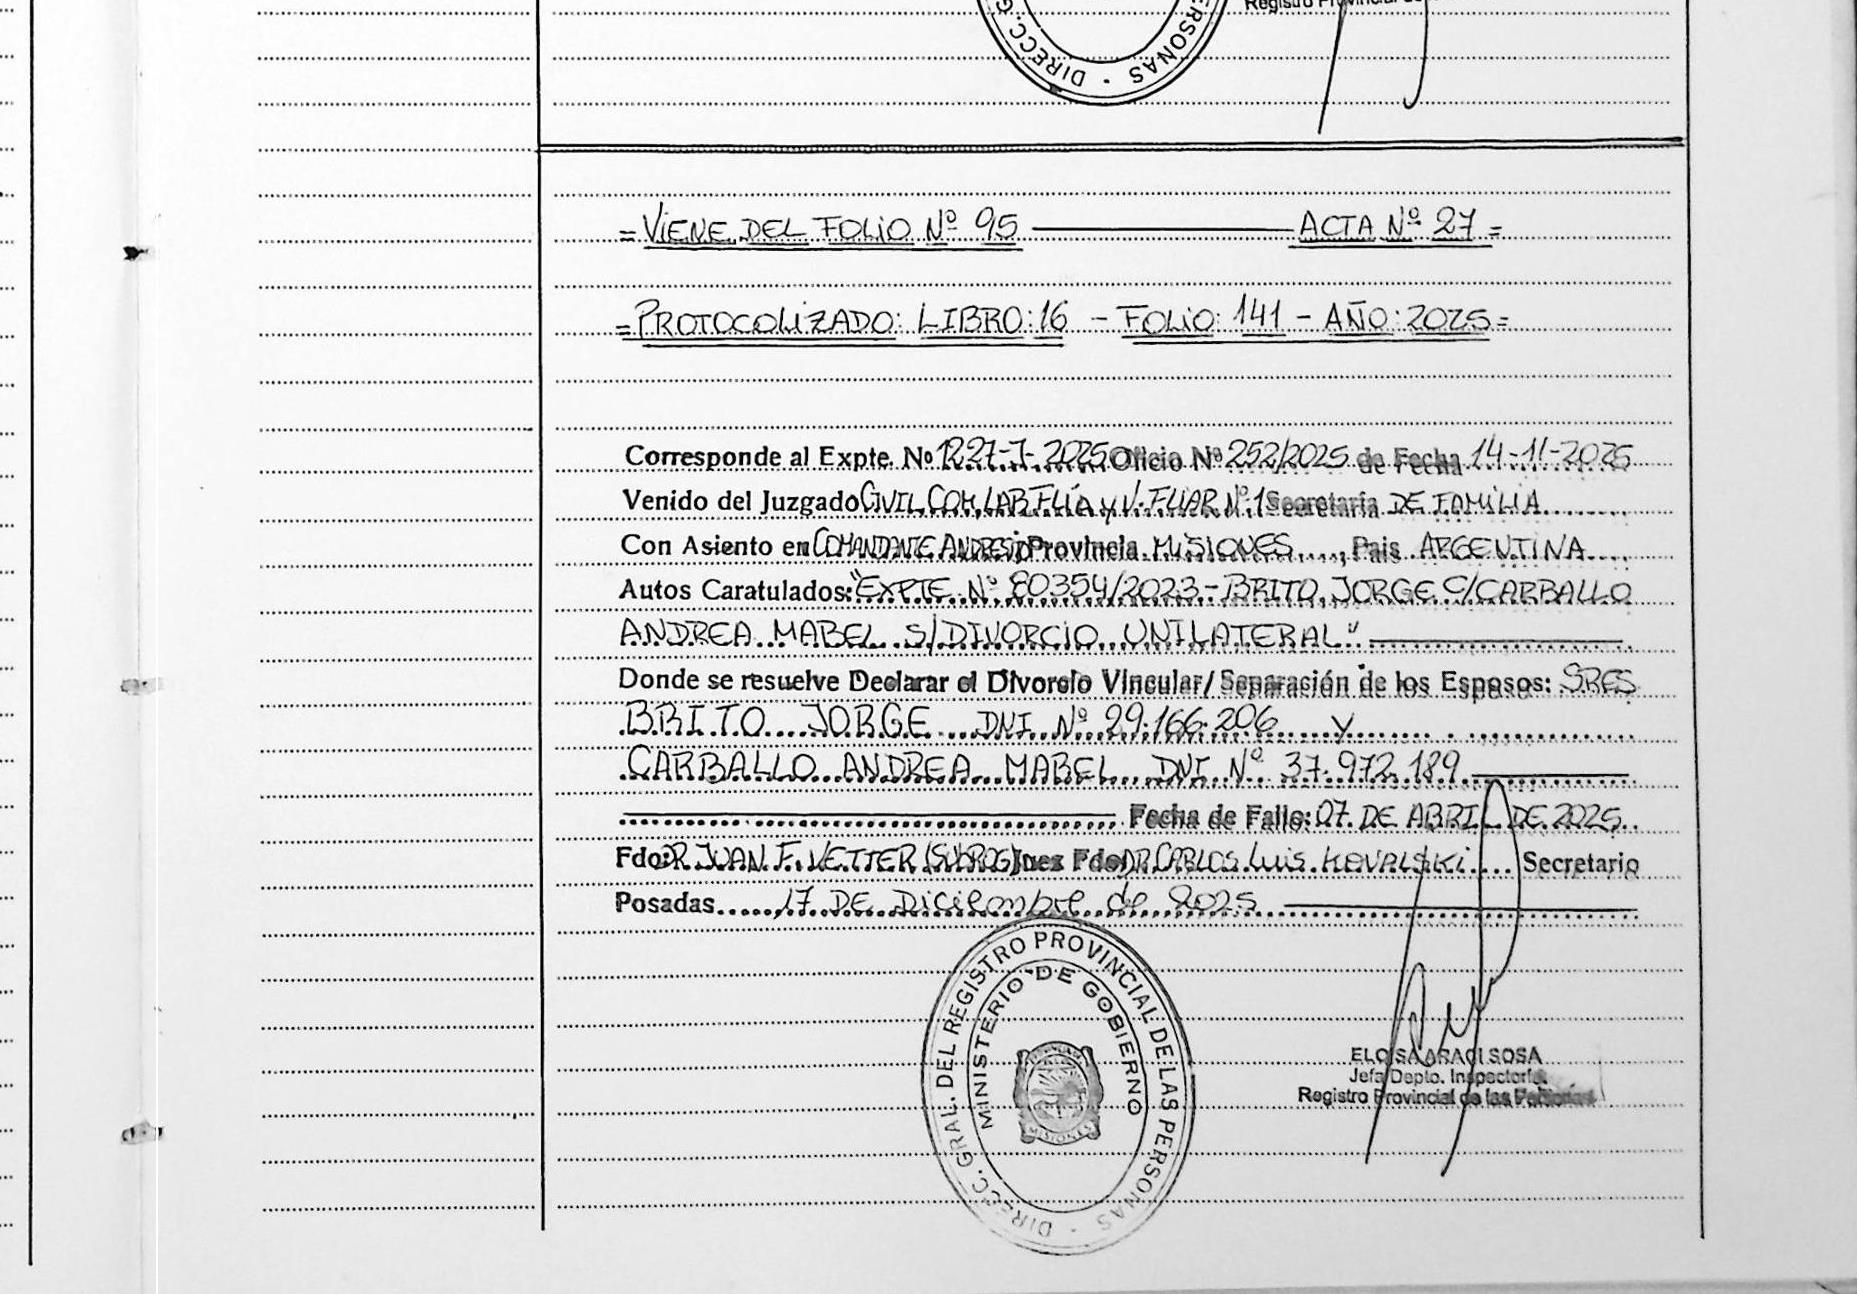 Registro Provincial de
DIRECC. G ERSONAS
= VIENE DEL FOLIO Nº 95 ACTA Nº 27 =
= PROTOCOLIZADO: LIBRO: 16 - FOLIO: 141 - AÑO: 2025 =
Corresponde al Expte. Nº 1227-J-2025 Oficio Nº 252/2025 de Fecha 14-11-2025
Venido del Juzgado CIVIL, COM, LAB FLIA y V. FLIAR Nº 1 Secretaría DE FAMILIA
Con Asiento en COMANDANTE ANDRESITO Provincia MISIONES, Pais ARGENTINA
Autos Caratulados: "EXPTE Nº 80354/2023 - BRITO, JORGE C/CARBALLO
ANDREA MABEL S/DIVORCIO UNILATERAL"
Donde se resuelve Declarar el Divorcio Vincular/Separación de los Esposos: SRES
BRITO JORGE DNI Nº 29.166.206 y
CARBALLO ANDREA MABEL DNI Nº 37.972.189
Fecha de Fallo: 07 DE ABRIL DE 2025
Fdo: DR JUAN F. VETTER (SUBROG) Juez Fdo: DR CARLOS LUIS KOVALSKI Secretario
Posadas, 17 DE Diciembre de 2025
DIRECC. GRAL. DEL REGISTRO PROVINCIAL DE LAS PERSONAS
MINISTERIO DE GOBIERNO
MISIONES
ELOISA ARACI SOSA
Jefa Depto. Inspectoría
Registro Provincial de las Personas